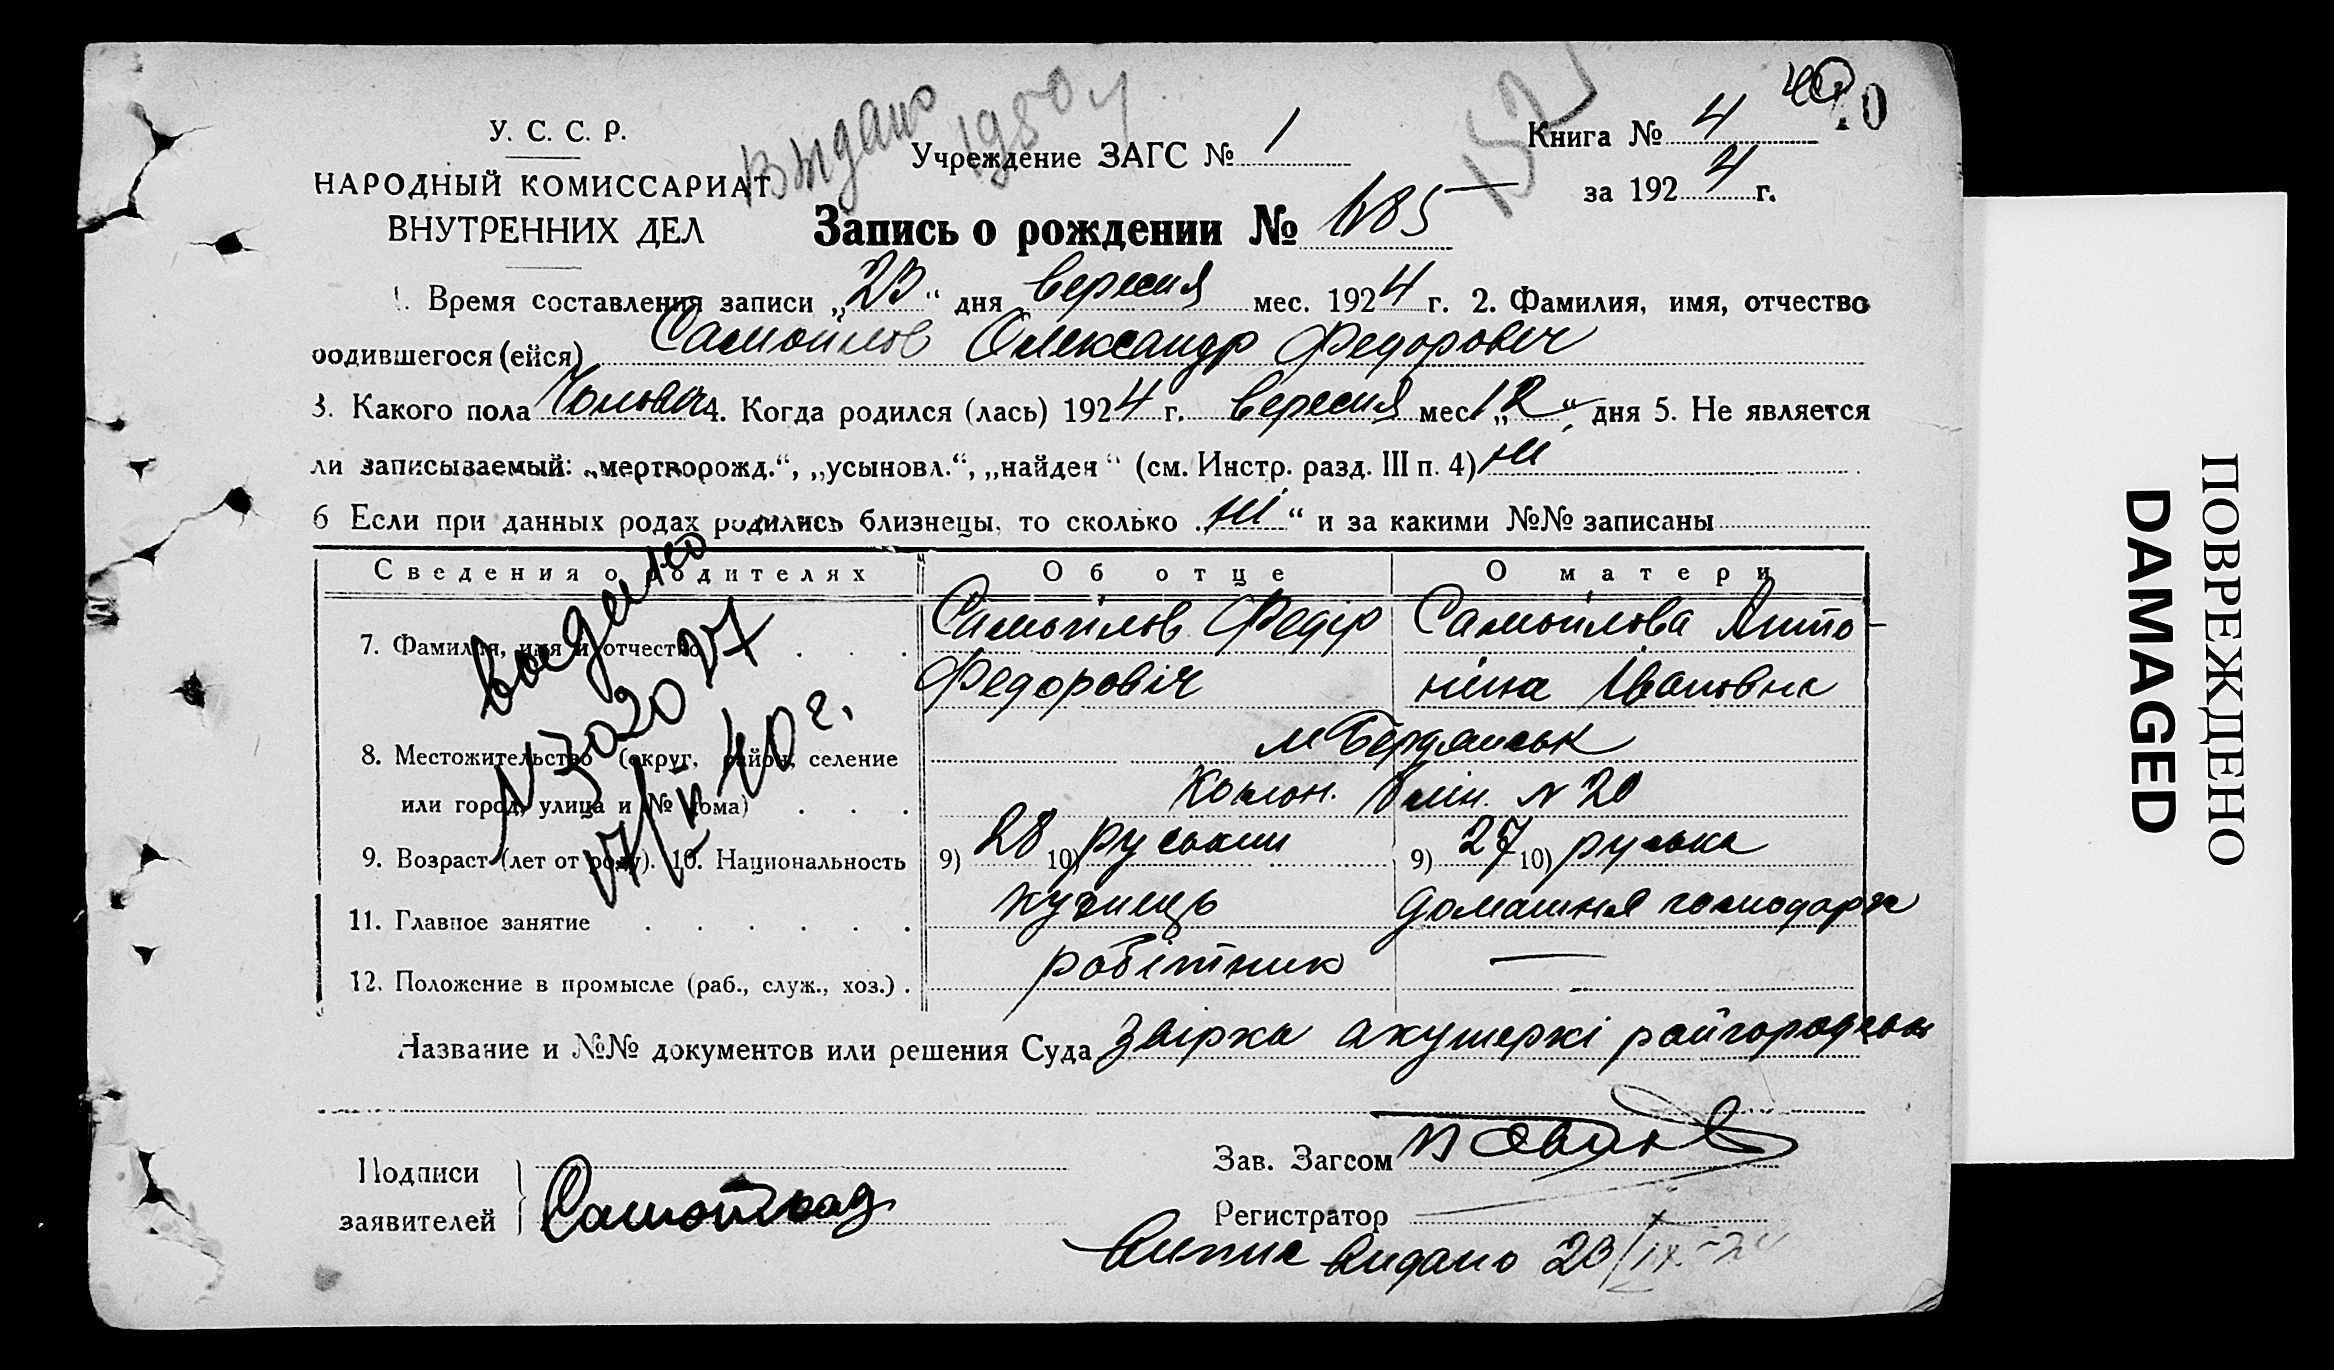 У. С. С. Р.
НАРОДНЫЙ КОМИССАРИАТ
ВНУТРЕННИХ ДЕЛ
Выдано
1950 г
Учреждение ЗАГС № 1
152
Книга № 4
40
за 1924 г.
Запись о рождении № 485
1. Время составления записи „23“ дня вересня мес. 1924 г. 2. Фамилия, имя, отчество
родившегося (ейся) Самойлов Олександр Федорович
3. Какого пола Чоловіч 4. Когда родился (лась) 1924 г. вересня мес „12“ дня 5. Не является
ли записываемый: „мертворожд.“, „усыновл.“, „найден“ (см. Инстр. разд. III п. 4) ні
6 Если при данных родах родились близнецы, то сколько „ні“ и за какими №№ записаны
Сведения о родителях Об отце О матери
7. Фамилия, имя и отчество Самойлов Федір Самойлова Анто-
Федоровіч ніна Івановна
8. Местожительство (округ, район, селение м Бердянськ
или город, улица и № дома) Колон. № 20
9. Возраст (лет от роду). 10. Национальность 9) 28 10) руський 9) 27 10) руська
11. Главное занятие кузнець домашня господарк
12. Положение в промысле (раб., служ., хоз.) робітник —
№ 3020 27
40 г.
Название и №№ документов или решения Суда Звірка акушеркі
Подписи
заявителей
Зав. Загсом
Регистратор
Випис видано 23/IX-24
ПОВРЕЖДЕНО
DAMAGED